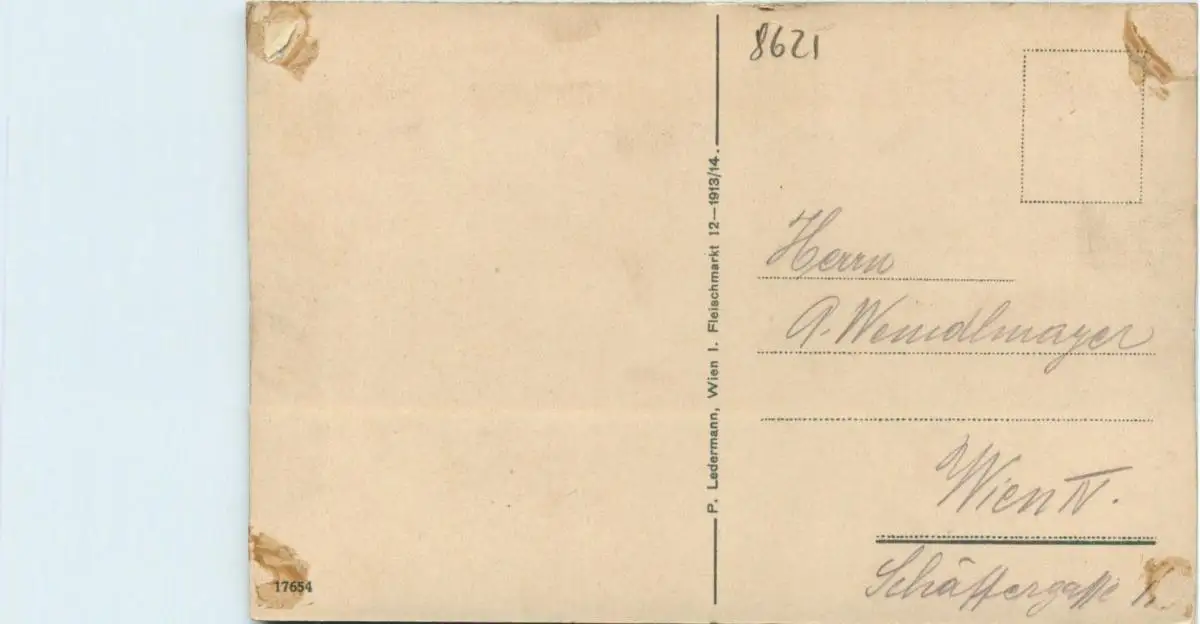 8621
P. Ledermann, Wien I. Fleischmarkt 12—1913/14.
Herrn
A. Weindlmayer
Wien IV.
Schäffergasse
17654